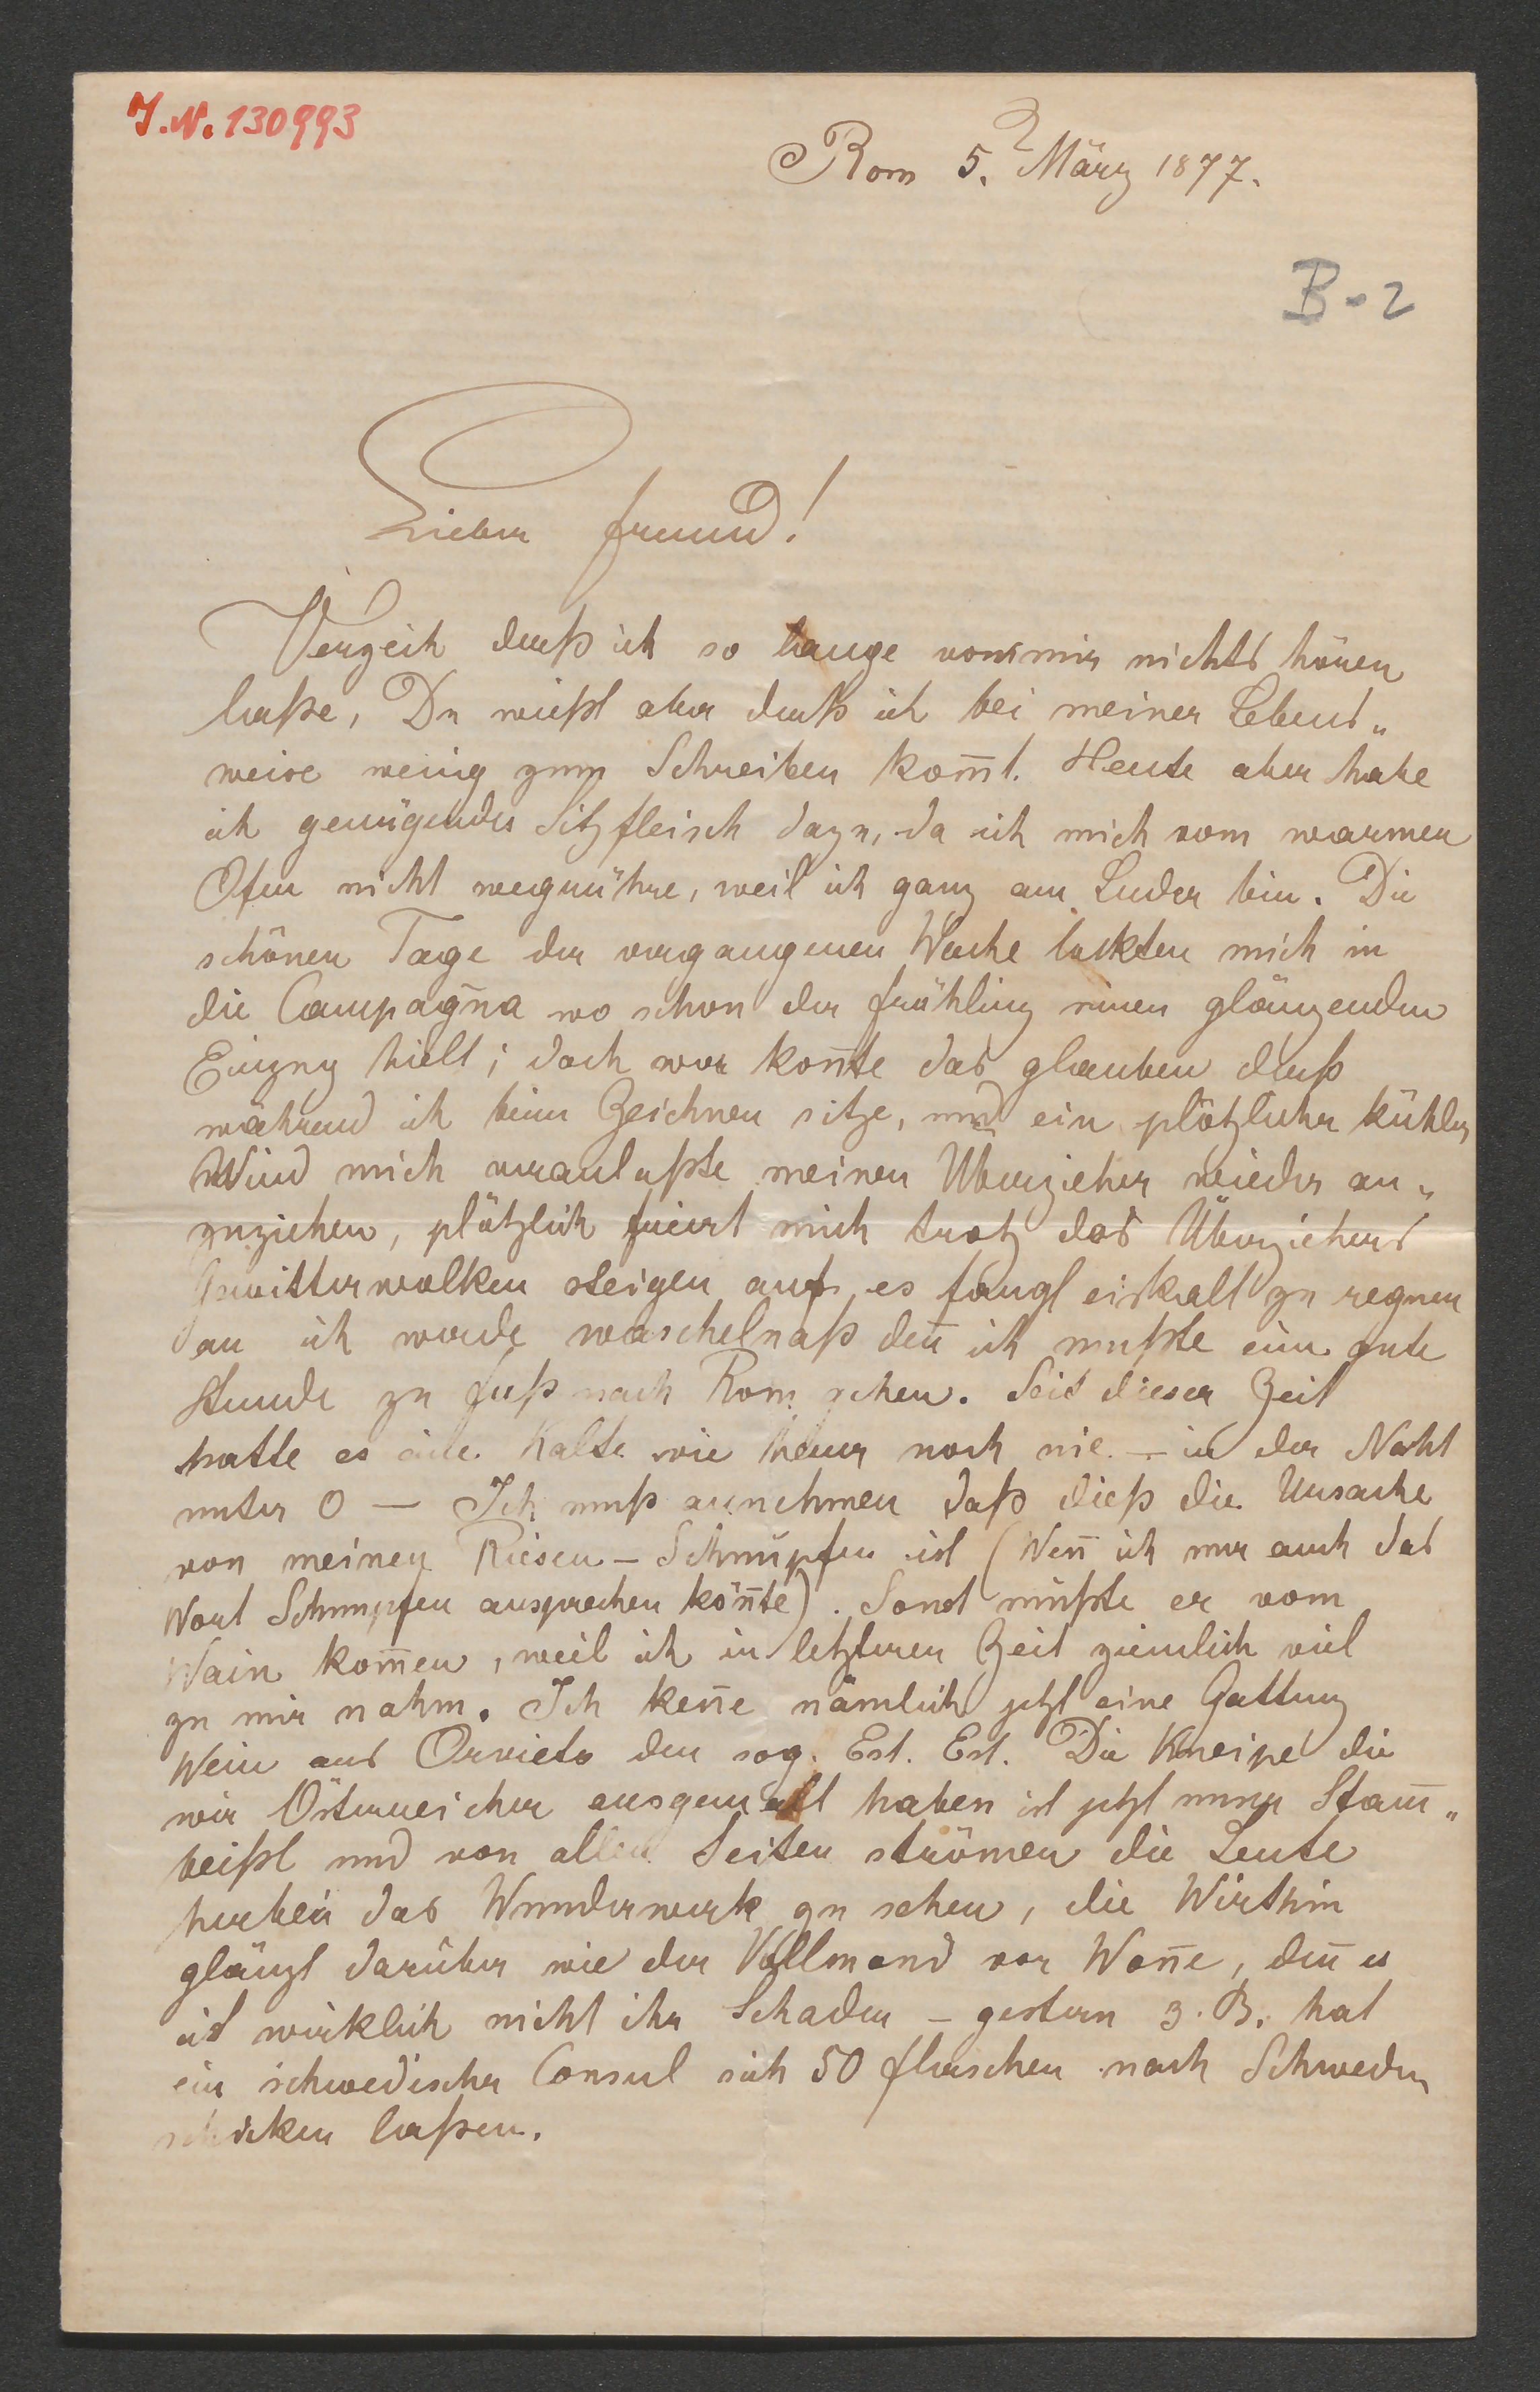 J.N. 130993
Rom 5. März 1877.
B-2
Lieber Freund!
Verzeih daß ich so lange von mir nichts hören
laße, Du weißt aber daß ich bei meiner Lebens„
weise wenig zum Schreiben kom̄t. Heute aber habe
ich genügendes Sitzfleisch dazu, da ich mich vom warmen
Ofen nicht wegrühre, weil ich ganz am Luder bin. Die
schönen Tage der vergangenen Woche lockten mich in
die Campagn̄a wo schon der Frühling seinen glänzenden
Einzug hielt; doch wer kon̄te das glauben daß
während ich beim Zeichnen sitze, und ein plötzlicher kühler
Wind mich veranlaßte meinen Überzieher wieder an„
zuziehen, plötzlich friert mich trotz des Überziehers
Gewitterwolken steigen auf, es fängt eiskalt zu regnen
an ich wurde waschelnaß den̄ ich mußte eine gute
Stunde zu Fuß nach Rom gehen. Seit dieser Zeit
hatte es eine Kälte wie heuer noch nie – in der Nacht
unter 0 – Ich muß annehmen daß dieß die Ursache
von meinen Riesen-Schnupfen ist (Wen̄ ich nur auch das
Wort Schnupfen aussprechen kön̄te). Sonst müßte er vom
Wein kom̄en, weil ich in letzterer Zeit ziemlich viel
zu mir nahm. Ich ken̄e nämlich jetzt eine Gattung
Wein aus Orvieto den sog. Est. Est. Die Kneipe die
wir Österreicher ausgemalt haben ist jetzt unser Stam̄„
beißl und von allen Seiten strömen die Leute
herbei das Wunderwerk zu sehen, die Wirthin
glänzt darüber wie der Vollmond vor Won̄e, den̄ es
ist wirklich nicht ihr Schaden – gestern z. B. hat
ein schwedischer Consul sich 50 Flaschen nach Schweden
schicken laßen.